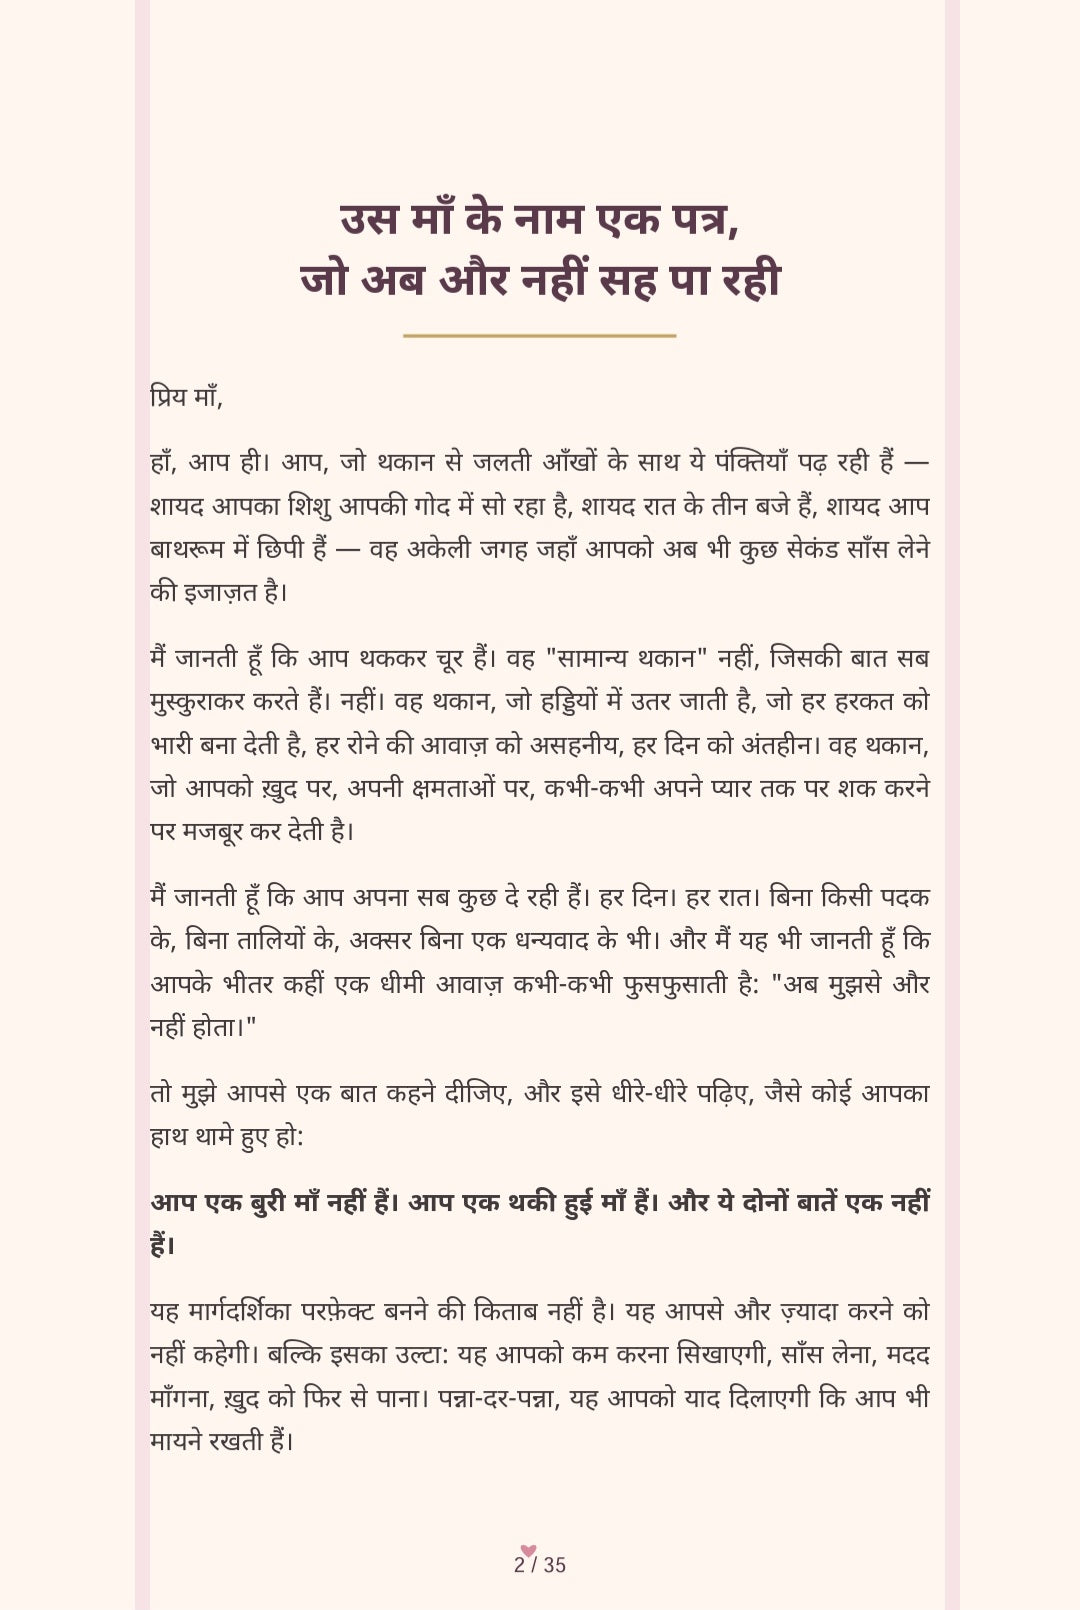 उस माँ के नाम एक पत्र,
जो अब और नहीं सह पा रही
प्रिय माँ,
हाँ, आप ही। आप, जो थकान से जलती आँखों के साथ ये पंक्तियाँ पढ़ रही हैं —
शायद आपका शिशु आपकी गोद में सो रहा है, शायद रात के तीन बजे हैं, शायद आप
बाथरूम में छिपी हैं — वह अकेली जगह जहाँ आपको अब भी कुछ सेकंड साँस लेने
की इजाज़त है।
मैं जानती हूँ कि आप थककर चूर हैं। वह "सामान्य थकान" नहीं, जिसकी बात सब
मुस्कुराकर करते हैं। नहीं। वह थकान, जो हड्डियों में उतर जाती है, जो हर हरकत को
भारी बना देती है, हर रोने की आवाज़ को असहनीय, हर दिन को अंतहीन। वह थकान,
जो आपको ख़ुद पर, अपनी क्षमताओं पर, कभी-कभी अपने प्यार तक पर शक करने
पर मजबूर कर देती है।
मैं जानती हूँ कि आप अपना सब कुछ दे रही हैं। हर दिन। हर रात। बिना किसी पदक
के, बिना तालियों के, अक्सर बिना एक धन्यवाद के भी। और मैं यह भी जानती हूँ कि
आपके भीतर कहीं एक धीमी आवाज़ कभी-कभी फुसफुसाती है: "अब मुझसे और
नहीं होता।"
तो मुझे आपसे एक बात कहने दीजिए, और इसे धीरे-धीरे पढ़िए, जैसे कोई आपका
हाथ थामे हुए हो:
आप एक बुरी माँ नहीं हैं। आप एक थकी हुई माँ हैं। और ये दोनों बातें एक नहीं
हैं।
यह मार्गदर्शिका परफ़ेक्ट बनने की किताब नहीं है। यह आपसे और ज़्यादा करने को
नहीं कहेगी। बल्कि इसका उल्टा: यह आपको कम करना सिखाएगी, साँस लेना, मदद
माँगना, ख़ुद को फिर से पाना। पन्ना-दर-पन्ना, यह आपको याद दिलाएगी कि आप भी
मायने रखती हैं।
2 / 35